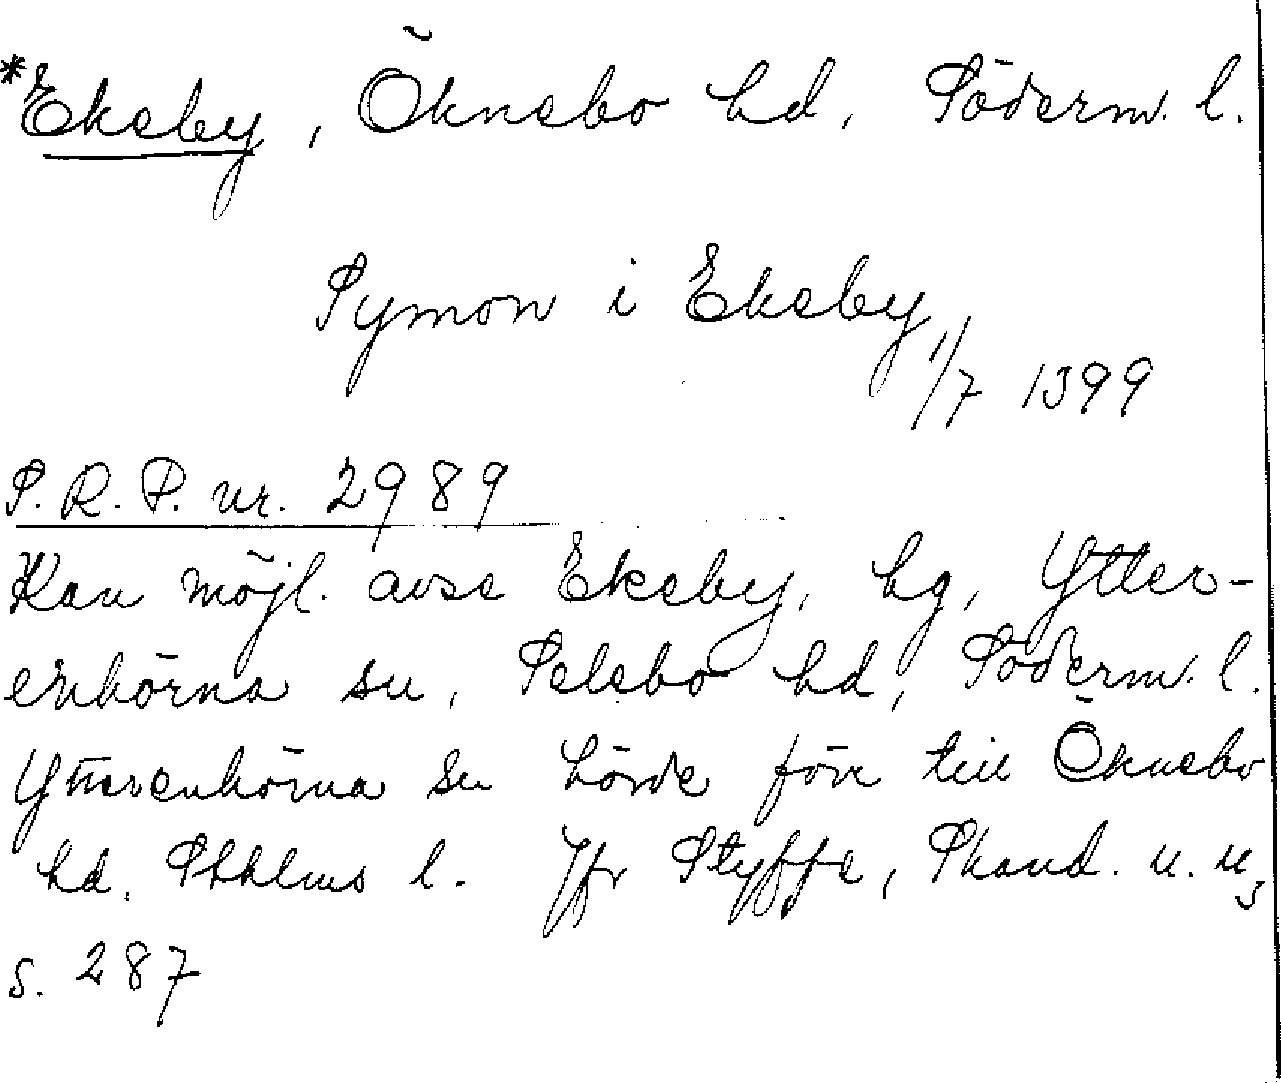 *Eksby, Öknebo hd, Söderm. l.
Symon i Eksby
1/7 1399
S.R.P. nr. 2989
Kan möjl. avse Eksby, hg, Ytter-
enhörna sn, Selebo hd, Söderm. l.
Ytterenhörna sn hörde förr till Öknebo
hd. Sthlms l. Jfr Styffe, Skand. u. u,
s. 287